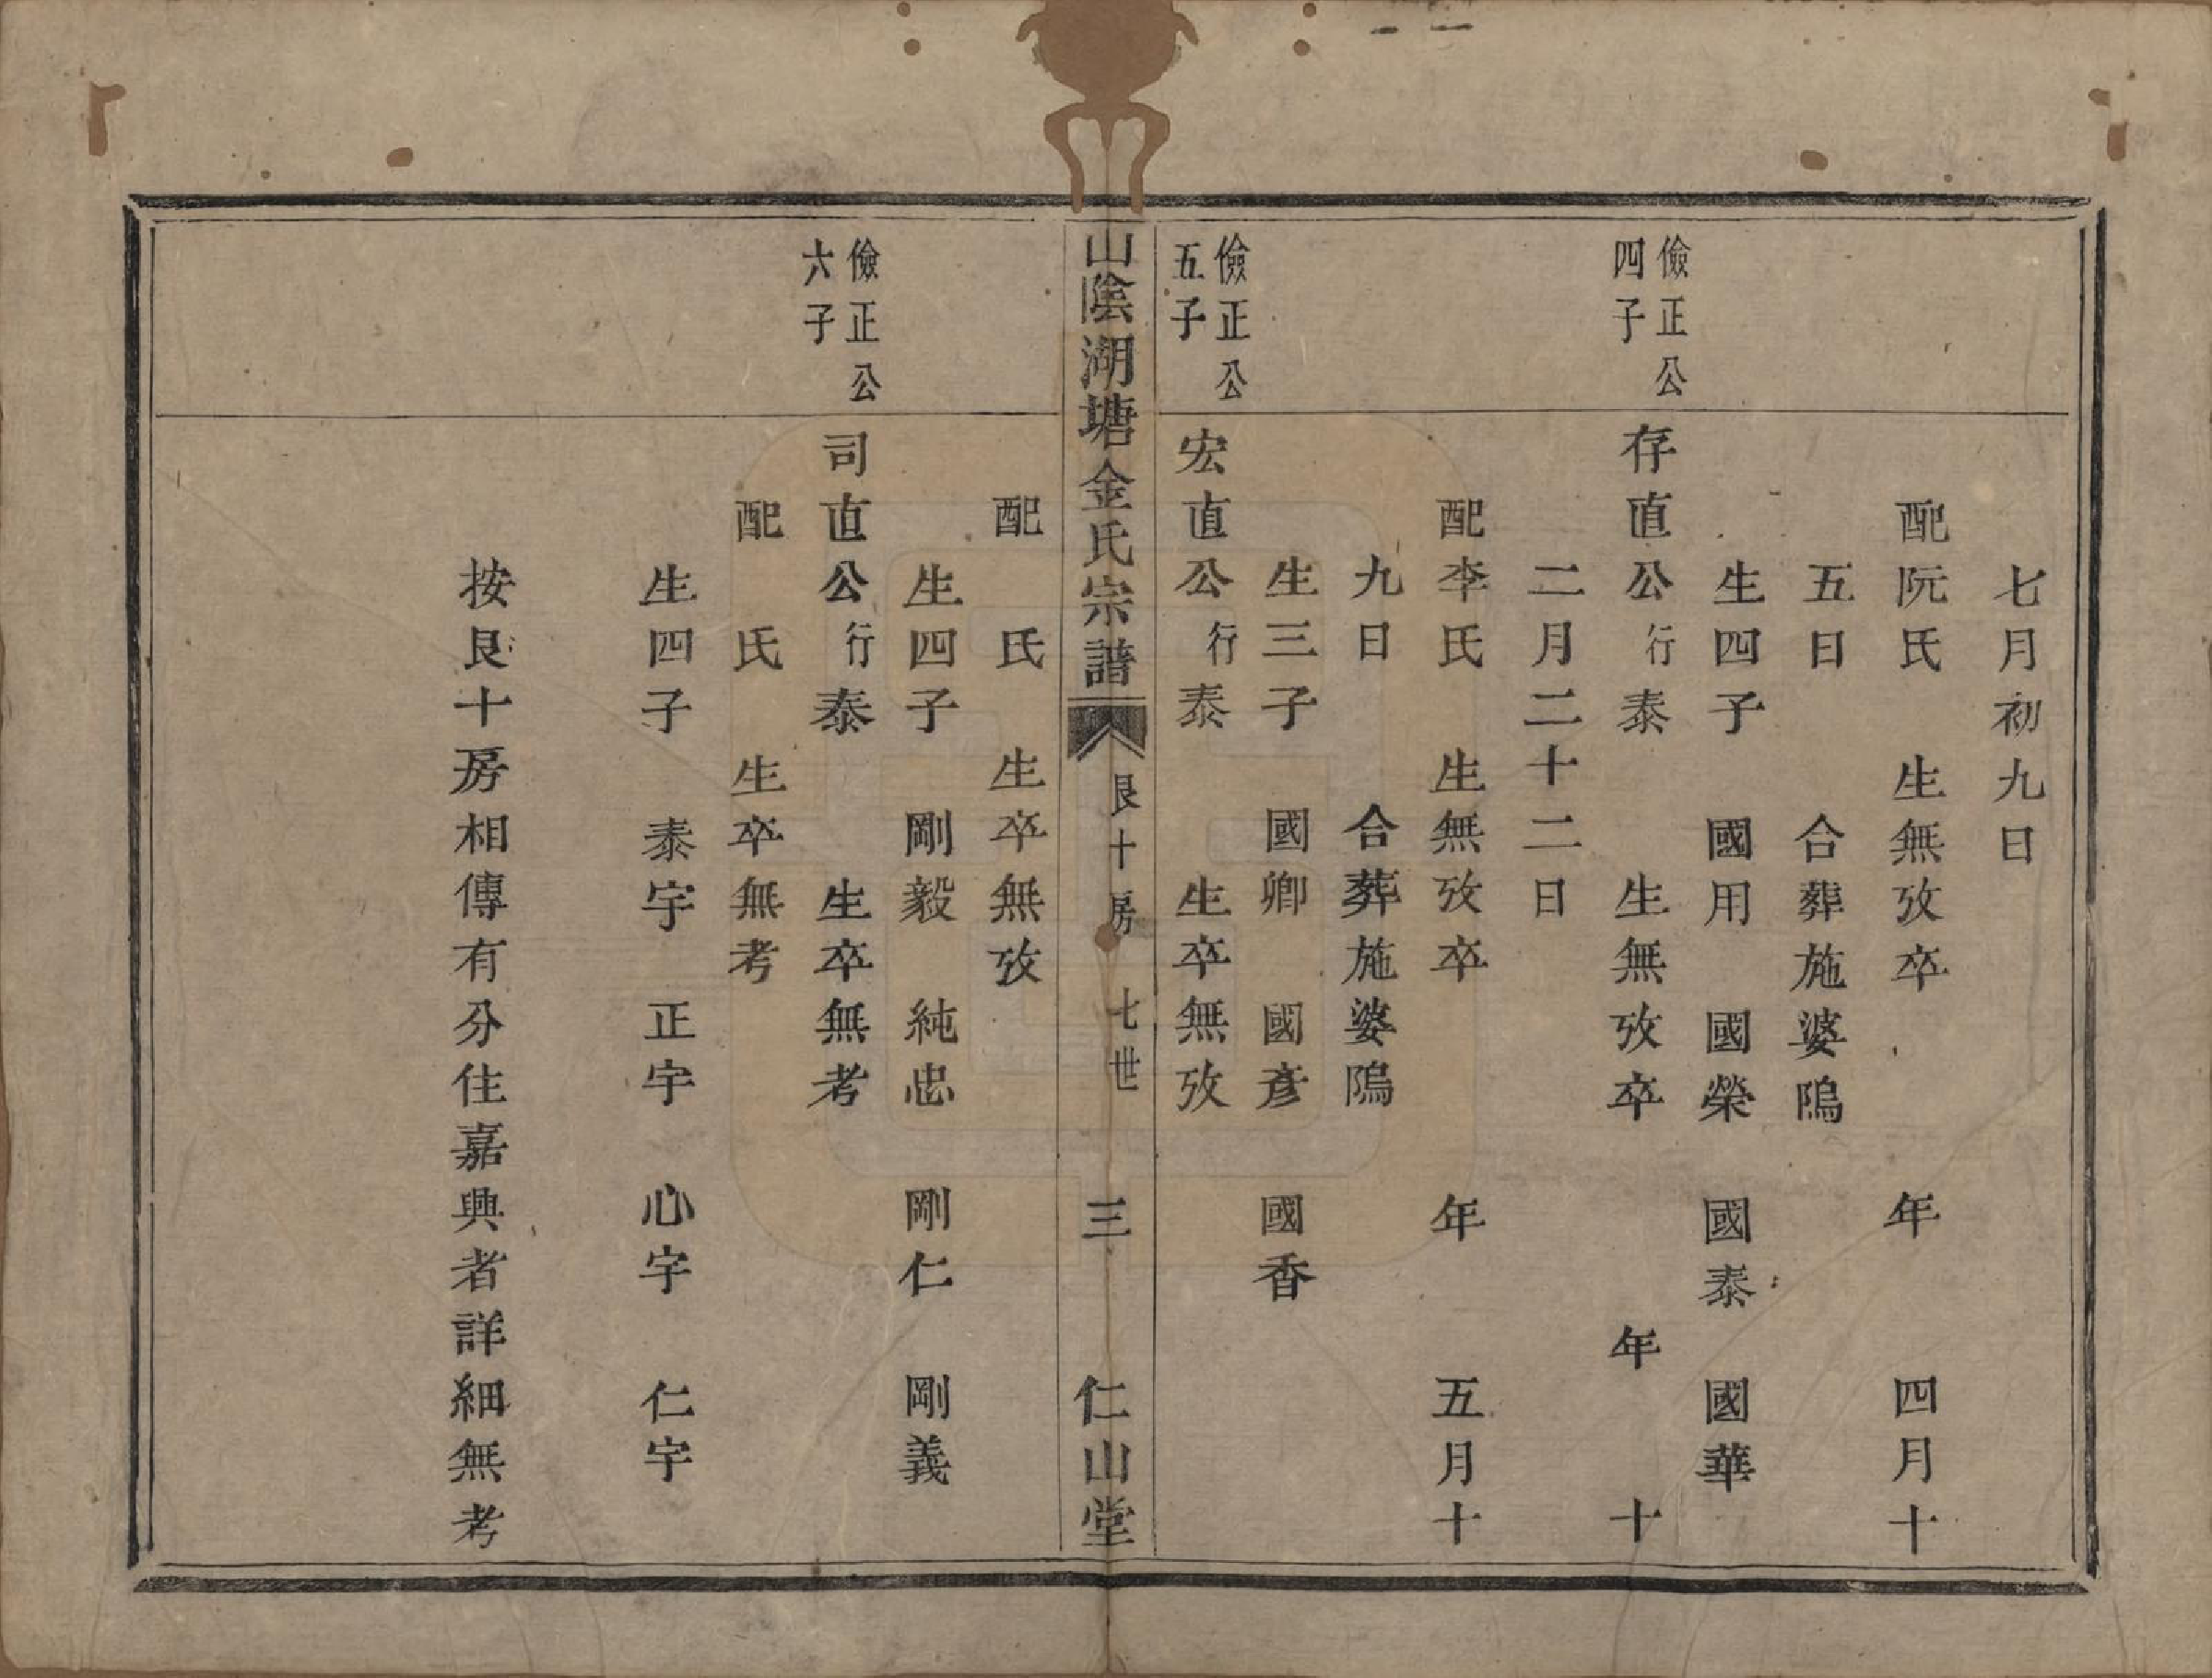 七月初九日
配阮氏　生無攷卒　年　四月十
五日　合葬施婆隝
生四子　國用　國榮　國泰　國華
儉正公
四子
存直公行泰　生無攷卒　年　十
二月二十二日
配李氏　生無攷卒　年　五月十
九日　合葬施婆隝
生三子　國卿　國彥　國香
儉正公
五子
宏直公行泰　生卒無攷
山陰湖塘金氏宗譜　艮十房　七世　三　仁山堂
配　氏　生卒無攷
生四子　剛毅　純忠　剛仁　剛義
儉正公
六子
司直公行泰　生卒無考
配　氏　生卒無考
生四子　泰宇　正宇　心宇　仁宇
按艮十房相傳有分住嘉興者詳細無考